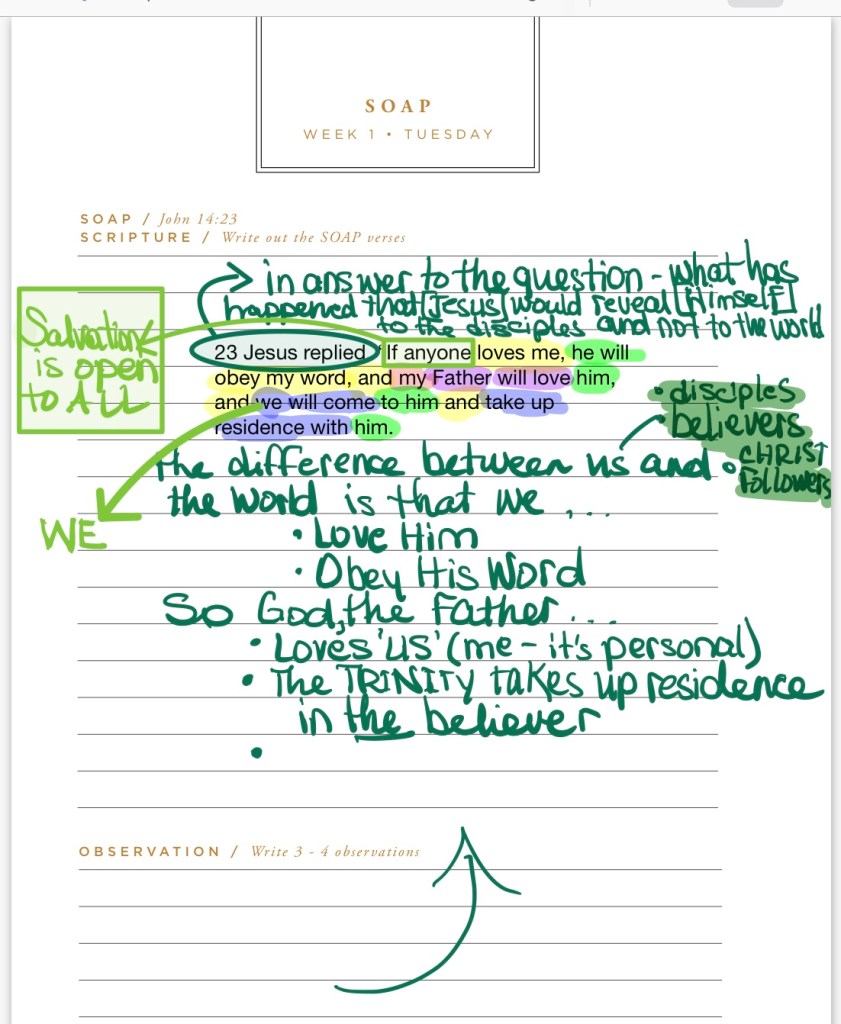 SOAP
WEEK 1 • TUESDAY
SOAP / John 14:23
SCRIPTURE / Write out the SOAP verses
in answer to the question - what has
happened that [Jesus] would reveal [Himself]
to the disciples and not to the world
Salvation
is open
to ALL
23 Jesus replied, "If anyone loves me, he will
obey my word, and my Father will love him,
and we will come to him and take up
residence with him.
• disciples
• believers
• CHRIST
Followers
the difference between us and
the world is that we ...
WE
• Love Him
• Obey His Word
So God, the Father ...
• Loves 'US' (me - it's personal)
• The TRINITY takes up residence
in the believer
•
OBSERVATION / Write 3 - 4 observations